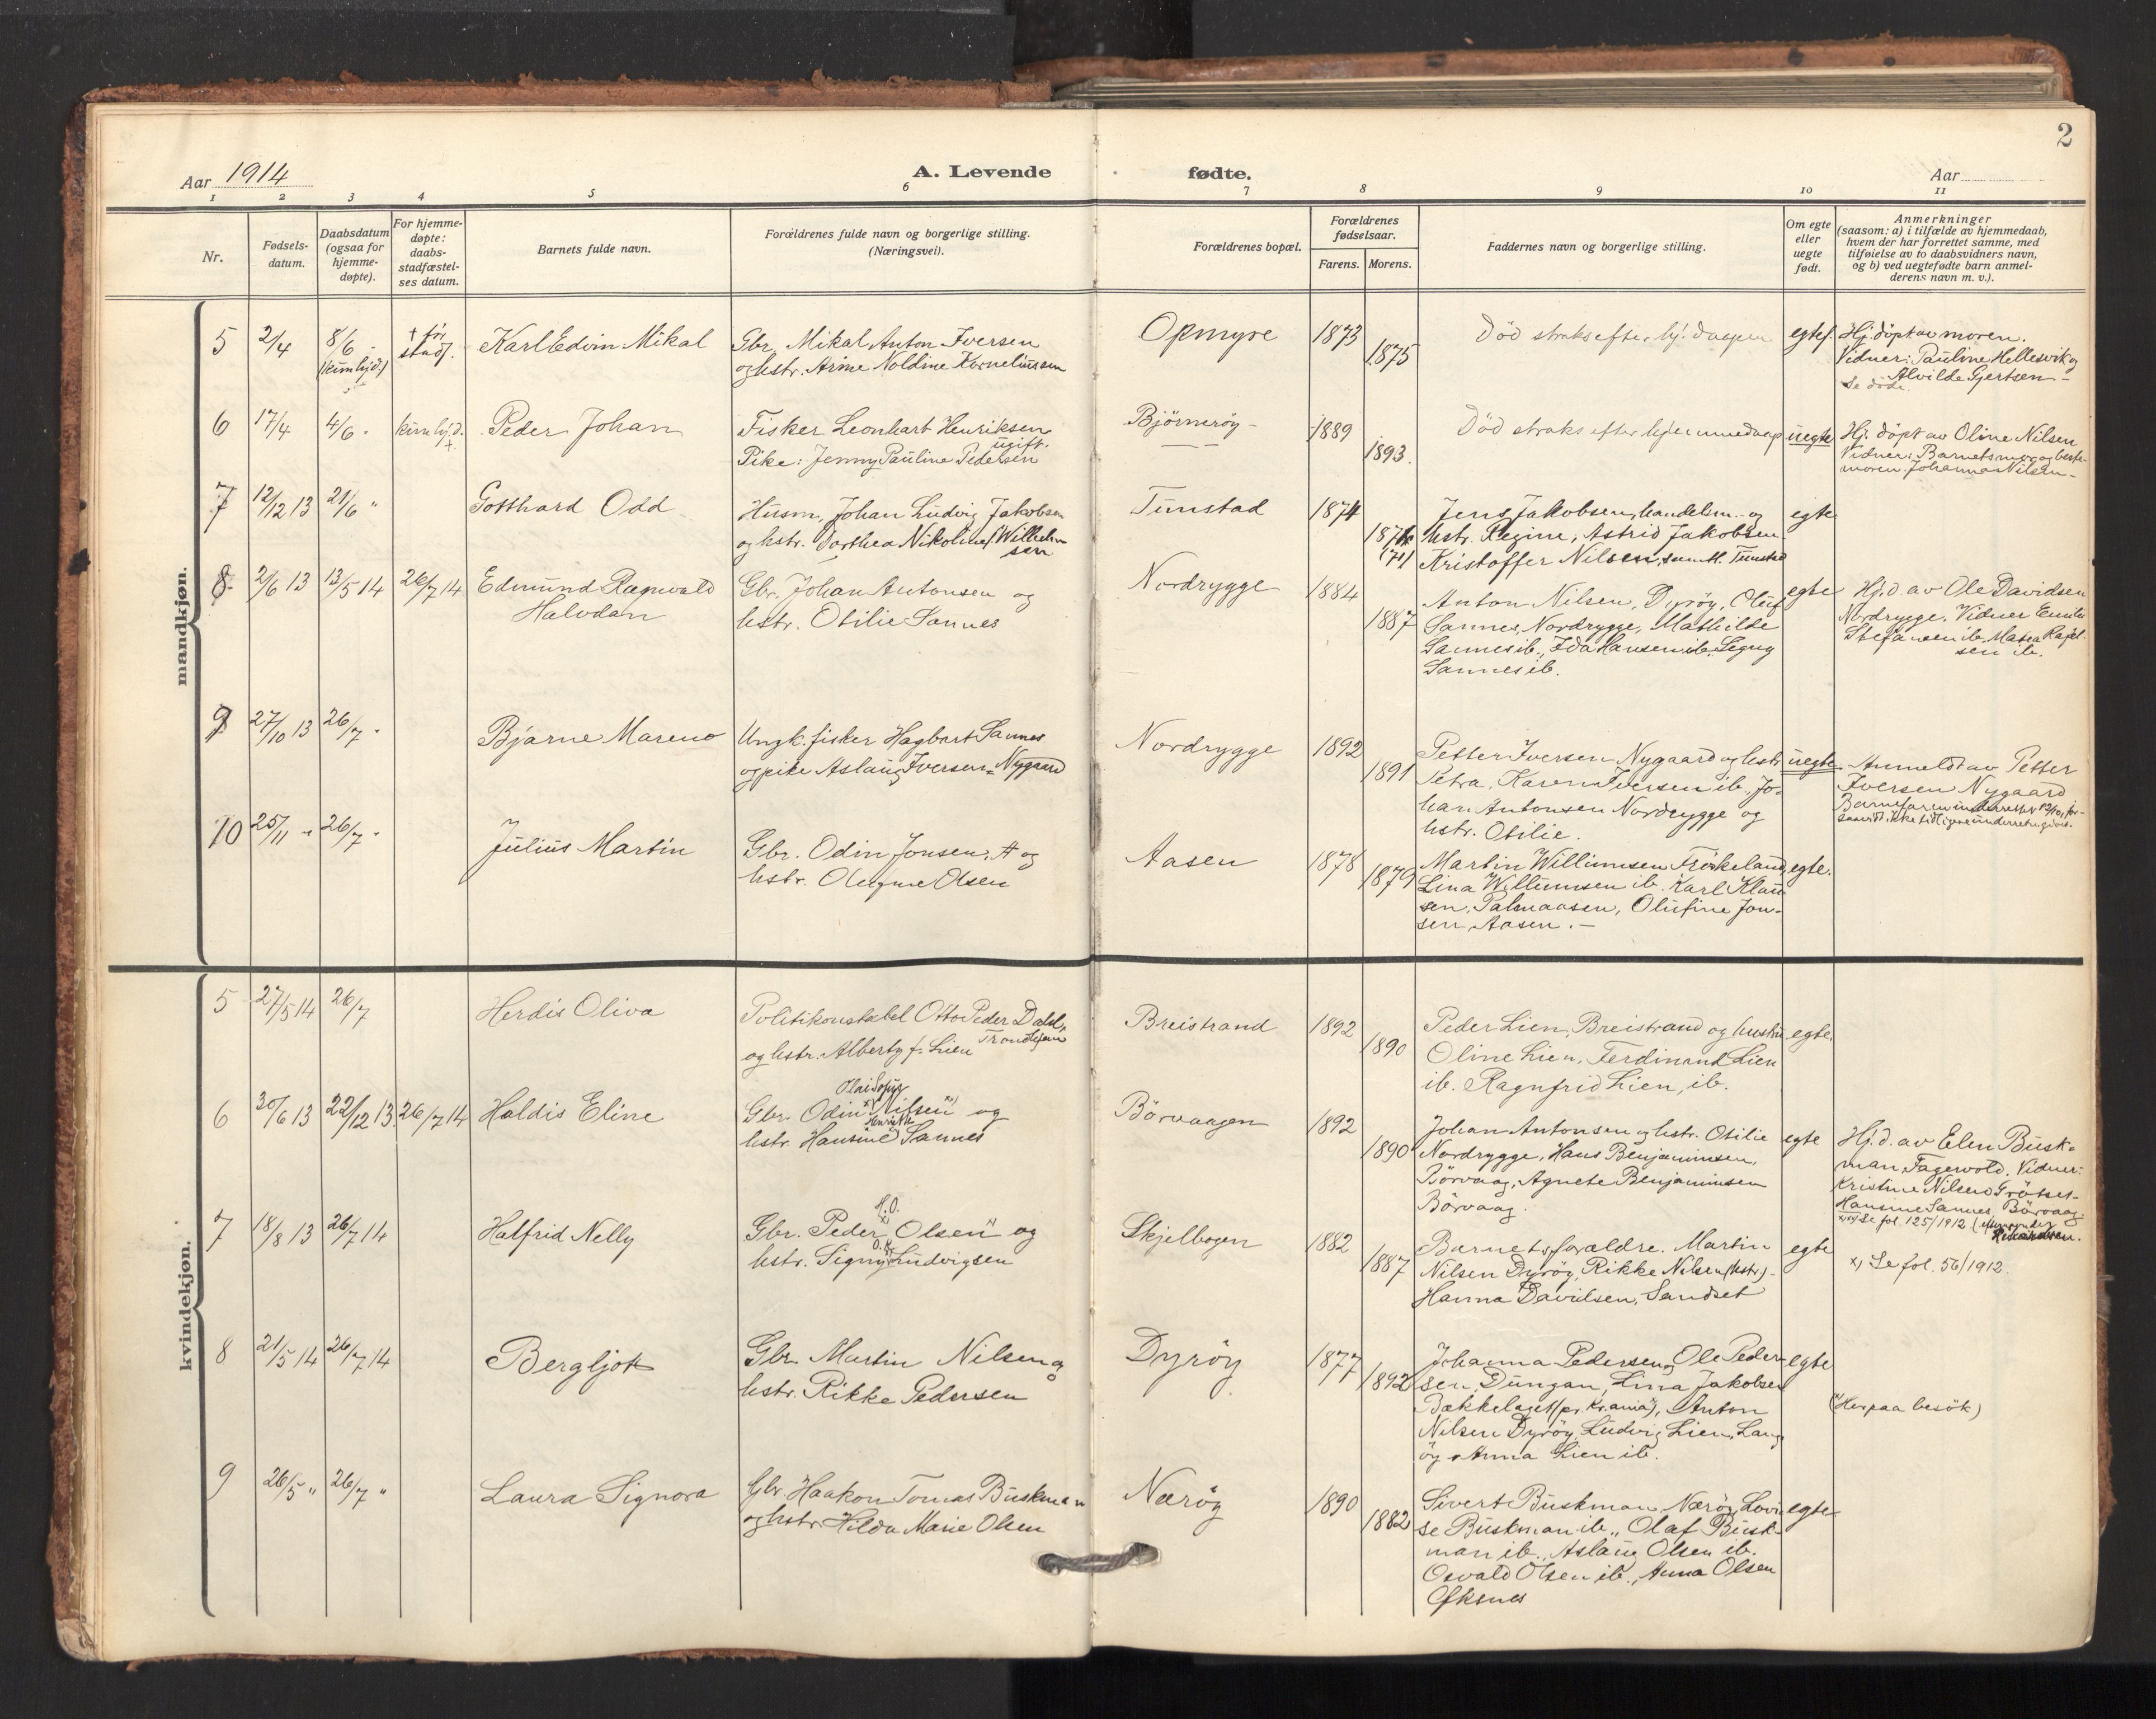 2
Aar 1914
A. Levende fødte.
Aar
1 2 3 4 5 6 7 8 9 10 11
Nr.
Fødsels-
datum.
Daabsdatum
(ogsaa for
hjemme-
døpte).
For hjemme-
døpte:
daabs-
stadfæstel-
ses datum.
Barnets fulde navn.
Forældrenes fulde navn og borgerlige stilling.
(Næringsvei).
Forældrenes bopæl.
Forældrenes
fødselsaar.
Farens. Morens.
Faddernes navn og borgerlige stilling.
Om egte
eller
uegte
født.
Anmerkninger
(saasom: a) i tilfælde av hjemmedaab,
hvem der har forrettet samme, med
tilføielse av to daabsvidners navn,
og b) ved uegtefødte barn anmel-
derens navn m. v.).
mandkjøn.
5 2/4 8/6 -
(kun hj.d.)
† før
stadf.
Karl Edvin Mikal
Gbr. Mikal Anton Iversen
og hstr. Arine Noldine Korneliussen
Opmyre
1873
1875
Død straks efter hj. daapen
egtef.
Hj. döpt av moren.
Vidner: Pauline Hellesvik og
Alvilde Gjertsen -
Se döde.
6 17/4 4/6 - kun hj.d.
+
Peder Johan
Fisker Leonhart Henriksen
ugift.
Pike: Jenny Pauline Pedersen
Björneröy -
1889
1893.
Död straks efter hjemmedaap
uegte
Hj. döpt av Oline Nilsen
Vidner: Barnets mor og beste-
moren Johanna Nilsen -
7 12/12 13 21/6 "
Gotthard Odd
Husm. Johan Ludvig Jakobsen
og hstr. Dorthea Nikoline Wilhelm
sen
Tunstad
1874
1871
(71)
Jens Jakobsen, handelsm. og
hstr. Regine, Astrid Jakobsen
Kristoffer Nilsen, samtl. Tunstad
egte
8 2/6 13 13/5 14 26/7 14
Edmund Ragnvald
Halvdan
Gbr. Johan Antonsen og
hstr. Otilie Sannes
Nordrygge
1884
1887
Anton Nilsen, Dyröy, Oluf
Sannes, Nordrygge, Mathilde
Sannes ib., Ida Hansen ib. Segny
Sannes ib.
egte
Hj.d. av Ole Davidsen
Nordrygge. Vidner Emilie
Stefansen ib. Matea Rafael-
sen ib.
9 27/10 13 26/7 -
Bjarne Mareno
Ungk. fisker Hagbart Sannes
og pike Aslaug Iversen - Nygaard
Nordrygge
1892
1891
Petter Iversen Nygaard og hstr
Petra, Karen Iversen ib. Jo-
han Antonsen Nordrygge og
hstr. Otilie.
uegte
Anmeldt av Petter
Iversen Nygaard
10 25/11 " 26/7 -
Julius Martin
Gbr. Odin Jonsen. A og
hstr. Olufine Olsen
Aasen
1878
1879
Martin Willumsen Frökeland
Lina Willumsen ib. Karl Klau
sen, Palmaasen, Olufine Jon-
sen Aasen. -
egte.
kvindekjøn.
5 27/5 14 26/7
Herdis Oliva
Politikonstabel Otto Peder Dahl,
Trondhjem
og hstr. Alberty f. Lien
Breistrand
1892
1890
Peder Lien, Breistrand og hustru
Oline Lien, Ferdinand Lien
ib. Ragnfrid Lien, ib.
egte.
6 30/6 13 22/12 13 26/7 14
Haldis Eline
Olai Sofus
Gbr. Odin Nilsen x) og
Henrikke
hstr. Hansine Sannes
Börvaagen
1892
1890
Johan Antonsen og hstr. Otilie
Nordrygge, Hans Benjaminsen,
Börvaag, Agnete Benjaminsen
Börvaag.
egte
Hj.d. av Elen Busk-
man Fagervold. Vidner:
Kristine Nilsen Grötset-
Hansine Sannes, Börvaag.
Se fol. 125/1912
7 18/8 13 26/7 14
Halfrid Nelly
H.O.
Gbr. Peder Olsen og
O.K.
hstr. Signy Ludvigsen
Skjelbogen
1882
1887
Barnets forældre. Martin
Nilsen Dyröy, Rikke Nilsen (hstr.) -
Hanna Davidsen, Sandset
egte
x) Se fol. 56/1912.
8 21/5 14 26/7 14
Bergljot
Gbr. Martin Nilsen og
hstr. Rikke Pedersen
Dyröy
1877
1892
Johanna Pedersen, Ole Peder-
sen, Dungan, Lina Jakobsen
Bækkelaget (pr. Kr.ania), Anton
Nilsen Dyröy, Ludvig Lien, Lang
öy Anna Lien ib.
egte
(Her paa besök)
9 26/5 " 26/7 "
Laura Signora
Gbr. Haakon Tomas Buskman
og hstr. Hilda Marie Olsen
Næröy
1890
1882
Sivert Buskman, Næröy, Lovi-
se Buskman ib., Olaf Busk-
man ib., Aslaug Olsen ib.
Osvald Olsen ib., Anna Olsen
Öksnes
egte